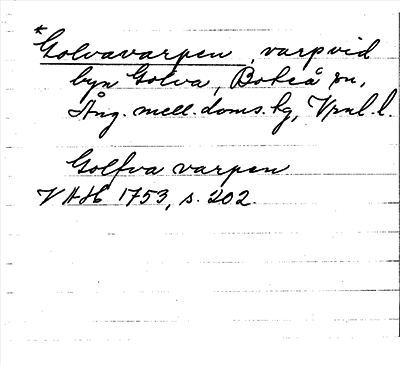 *Golvavarpen, varp vid
byn Golva, Boteå sn,
Ång. mell. doms. tg, Vpnl. l.
Golfva varpen
VAH 1753, s. 202.